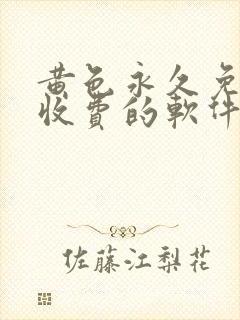 黄色永久免
收费的軟件
佐藤江梨花